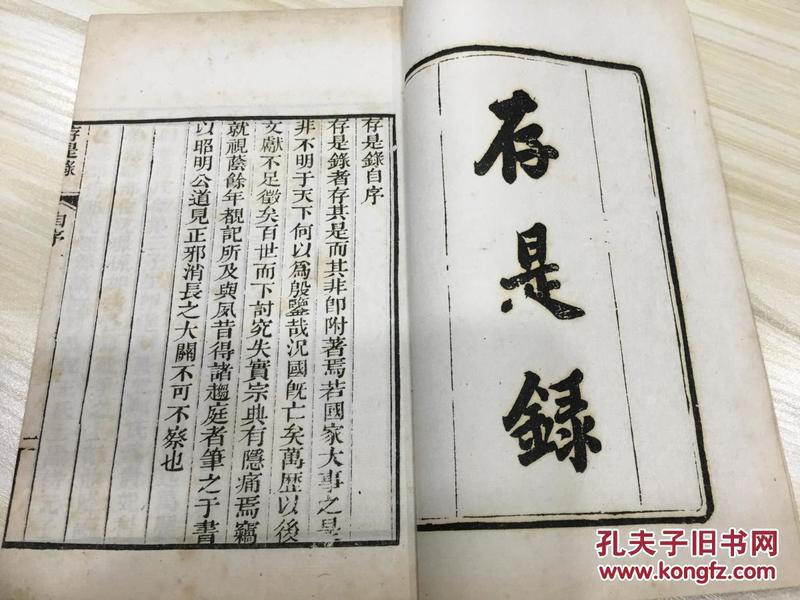 存是錄
存是錄自序
存是錄者存其是而其非卽附著焉若國家大事之是
非不明于天下何以爲殷鑒哉況國旣亡矣萬歴以後
文獻不足徵矣百世而下討究失實宗典有隱痛焉竊
就視蔭餘年覩記所及與夙昔得諸趨庭者筆之于書
以昭明公道見正邪消長之大關不可不察也
存是錄
自序
二
孔夫子旧书网
www.kongfz.com